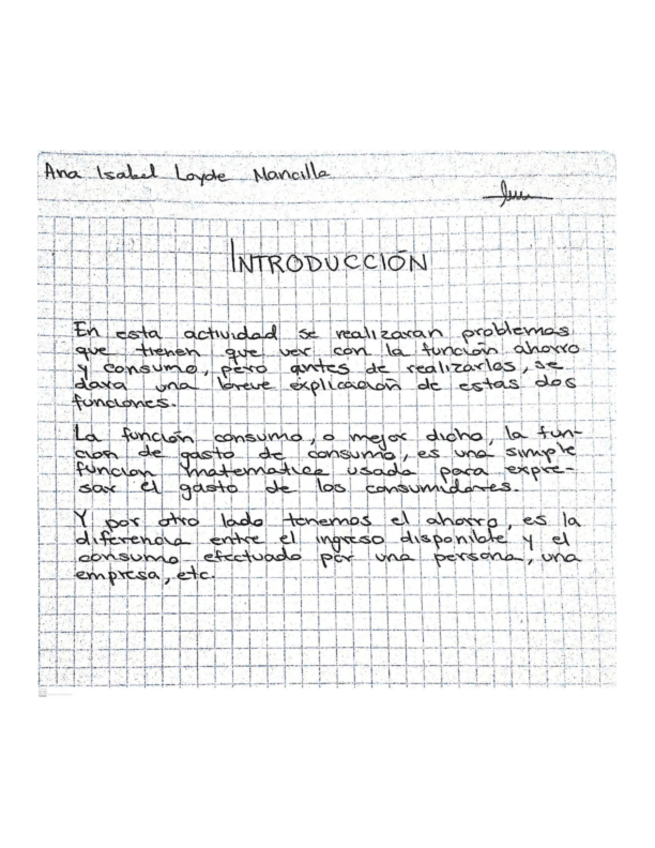 Ana Isabel Loyde Mancilla
INTRODUCCIÓN
En esta actividad se realizaran problemas
que tienen que ver con la función ahorro
y consumo, pero antes de realizarlas, se
dara una breve explicación de estas dos
funciones.
La función consumo, o mejor dicho, la fun-
ción de gasto de consumo, es una simple
funcion matematica usada para expre-
sar el gasto de los consumidores.
Y por otro lado tenemos el ahorro, es la
diferencia entre el ingreso disponible y el
consumo efectuado por una persona, una
empresa, etc.